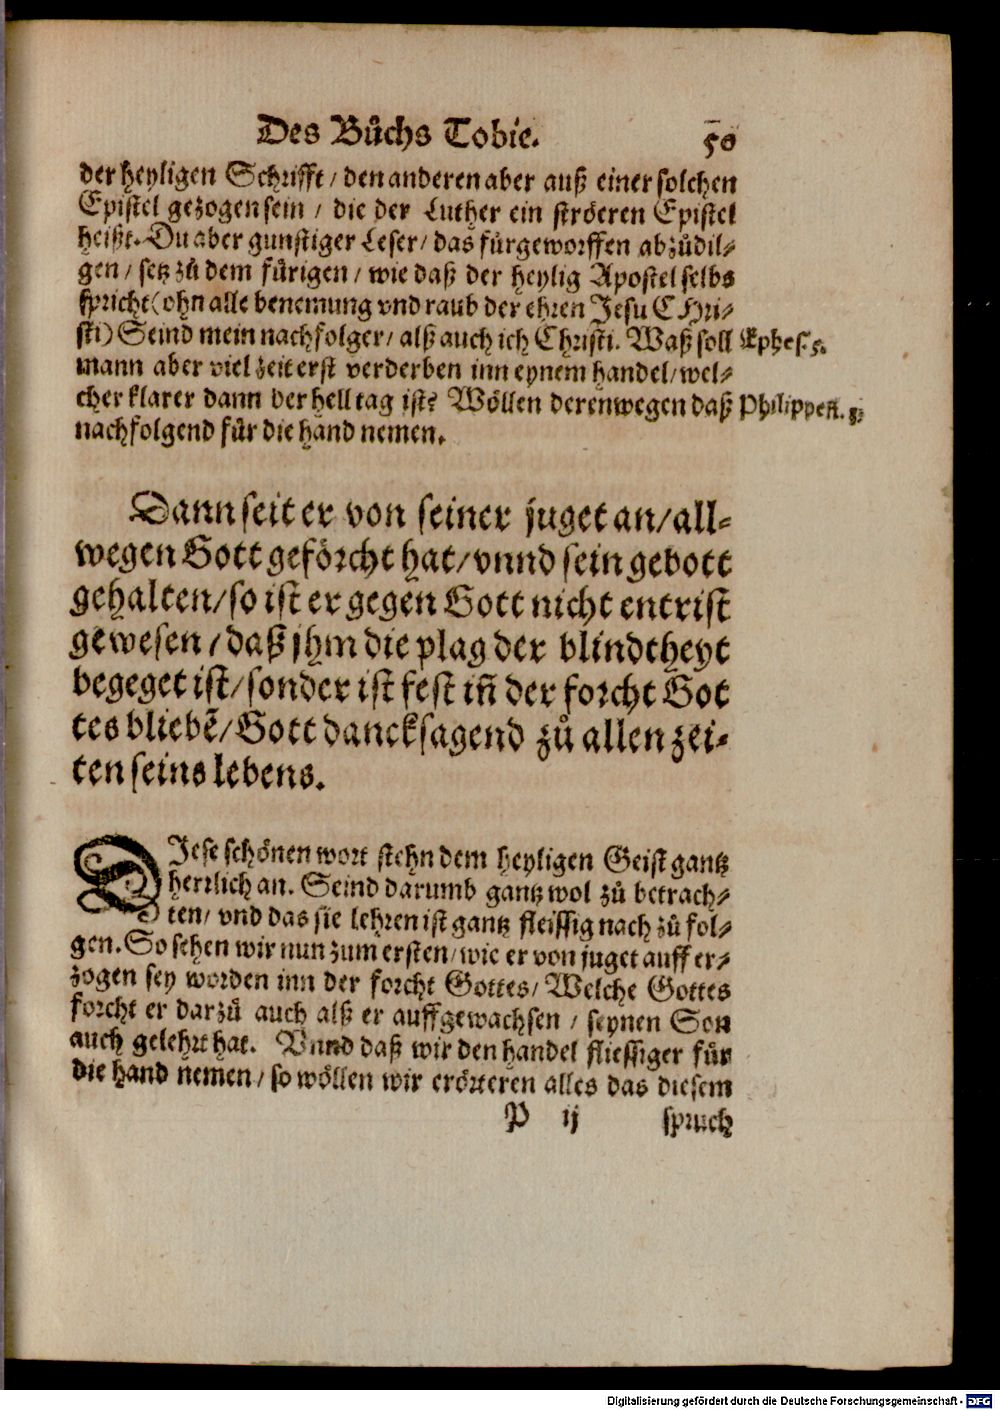 Des Bůchs Tobie. 50
der heyligen Schrifft / den anderen aber auß einer solchen
Epistel gezogen sein / die der Luther ein ströeren Epistel
heißt. Du aber gunstiger Leser / das fürgeworffen abzůdil-
gen / setz zů dem fürigen / wie daß der heylig Apostel selbs
spricht (ohn alle benemung vnd raub der ehren Jesu CHri-
sti) Seind mein nachfolger / alß auch ich Christi. Waß soll
Ephes. 5.
mann aber viel zeit erst verderben inn eynem handel / wel-
cher klarer dann der hell tag ist? Wöllen derenwegen daß
Philippen. 3
nachfolgend für die hand nemen.
Dann seit er von seiner juget an / all-
wegen Gott geförcht hat / vnnd sein gebott
gehalten / so ist er gegen Gott nicht entrist
gewesen / daß jhm die plag der blindtheyt
begeget ist / sonder ist fest iñ der forcht Got
tes bliebẽ / Gott dancksagend zů allen zei-
ten seins lebens.
DJese schönen wort stehn dem heyligen Geist gantz
herrlich an. Seind darumb gantz wol zů betrach-
ten / vnd das sie lehren ist gantz fleissig nach zů fol-
gen. So sehen wir nun zum ersten / wie er von juget auff er-
zogen sey worden inn der forcht Gottes / Welche Gottes
forcht er darzů auch alß er auffgewachsen / seynen Son
auch gelehrt hat. Vnnd daß wir den handel fliessiger für
die hand nemen / so wöllen wir erörteren alles das diesem
P ij spruch
Digitalisierung gefördert durch die Deutsche Forschungsgemeinschaft - DFG